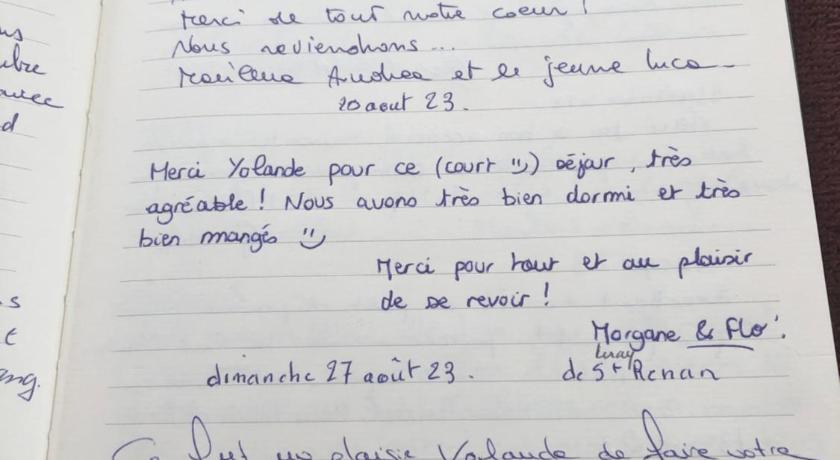 Merci de tout notre coeur !
Nous reviendrons...
Andrea et le jeune Luca -
20 aout 23.
Merci Yolande pour ce (court ü) séjour, très
agréable ! Nous avons très bien dormi et très
bien mangés ü
Merci pour tout et au plaisir
de se revoir !
Morgane & Flo'.
dimanche 27 août 23. de St Renan
Ce fut un plaisir Yolande de faire votre
avec
d
s
t